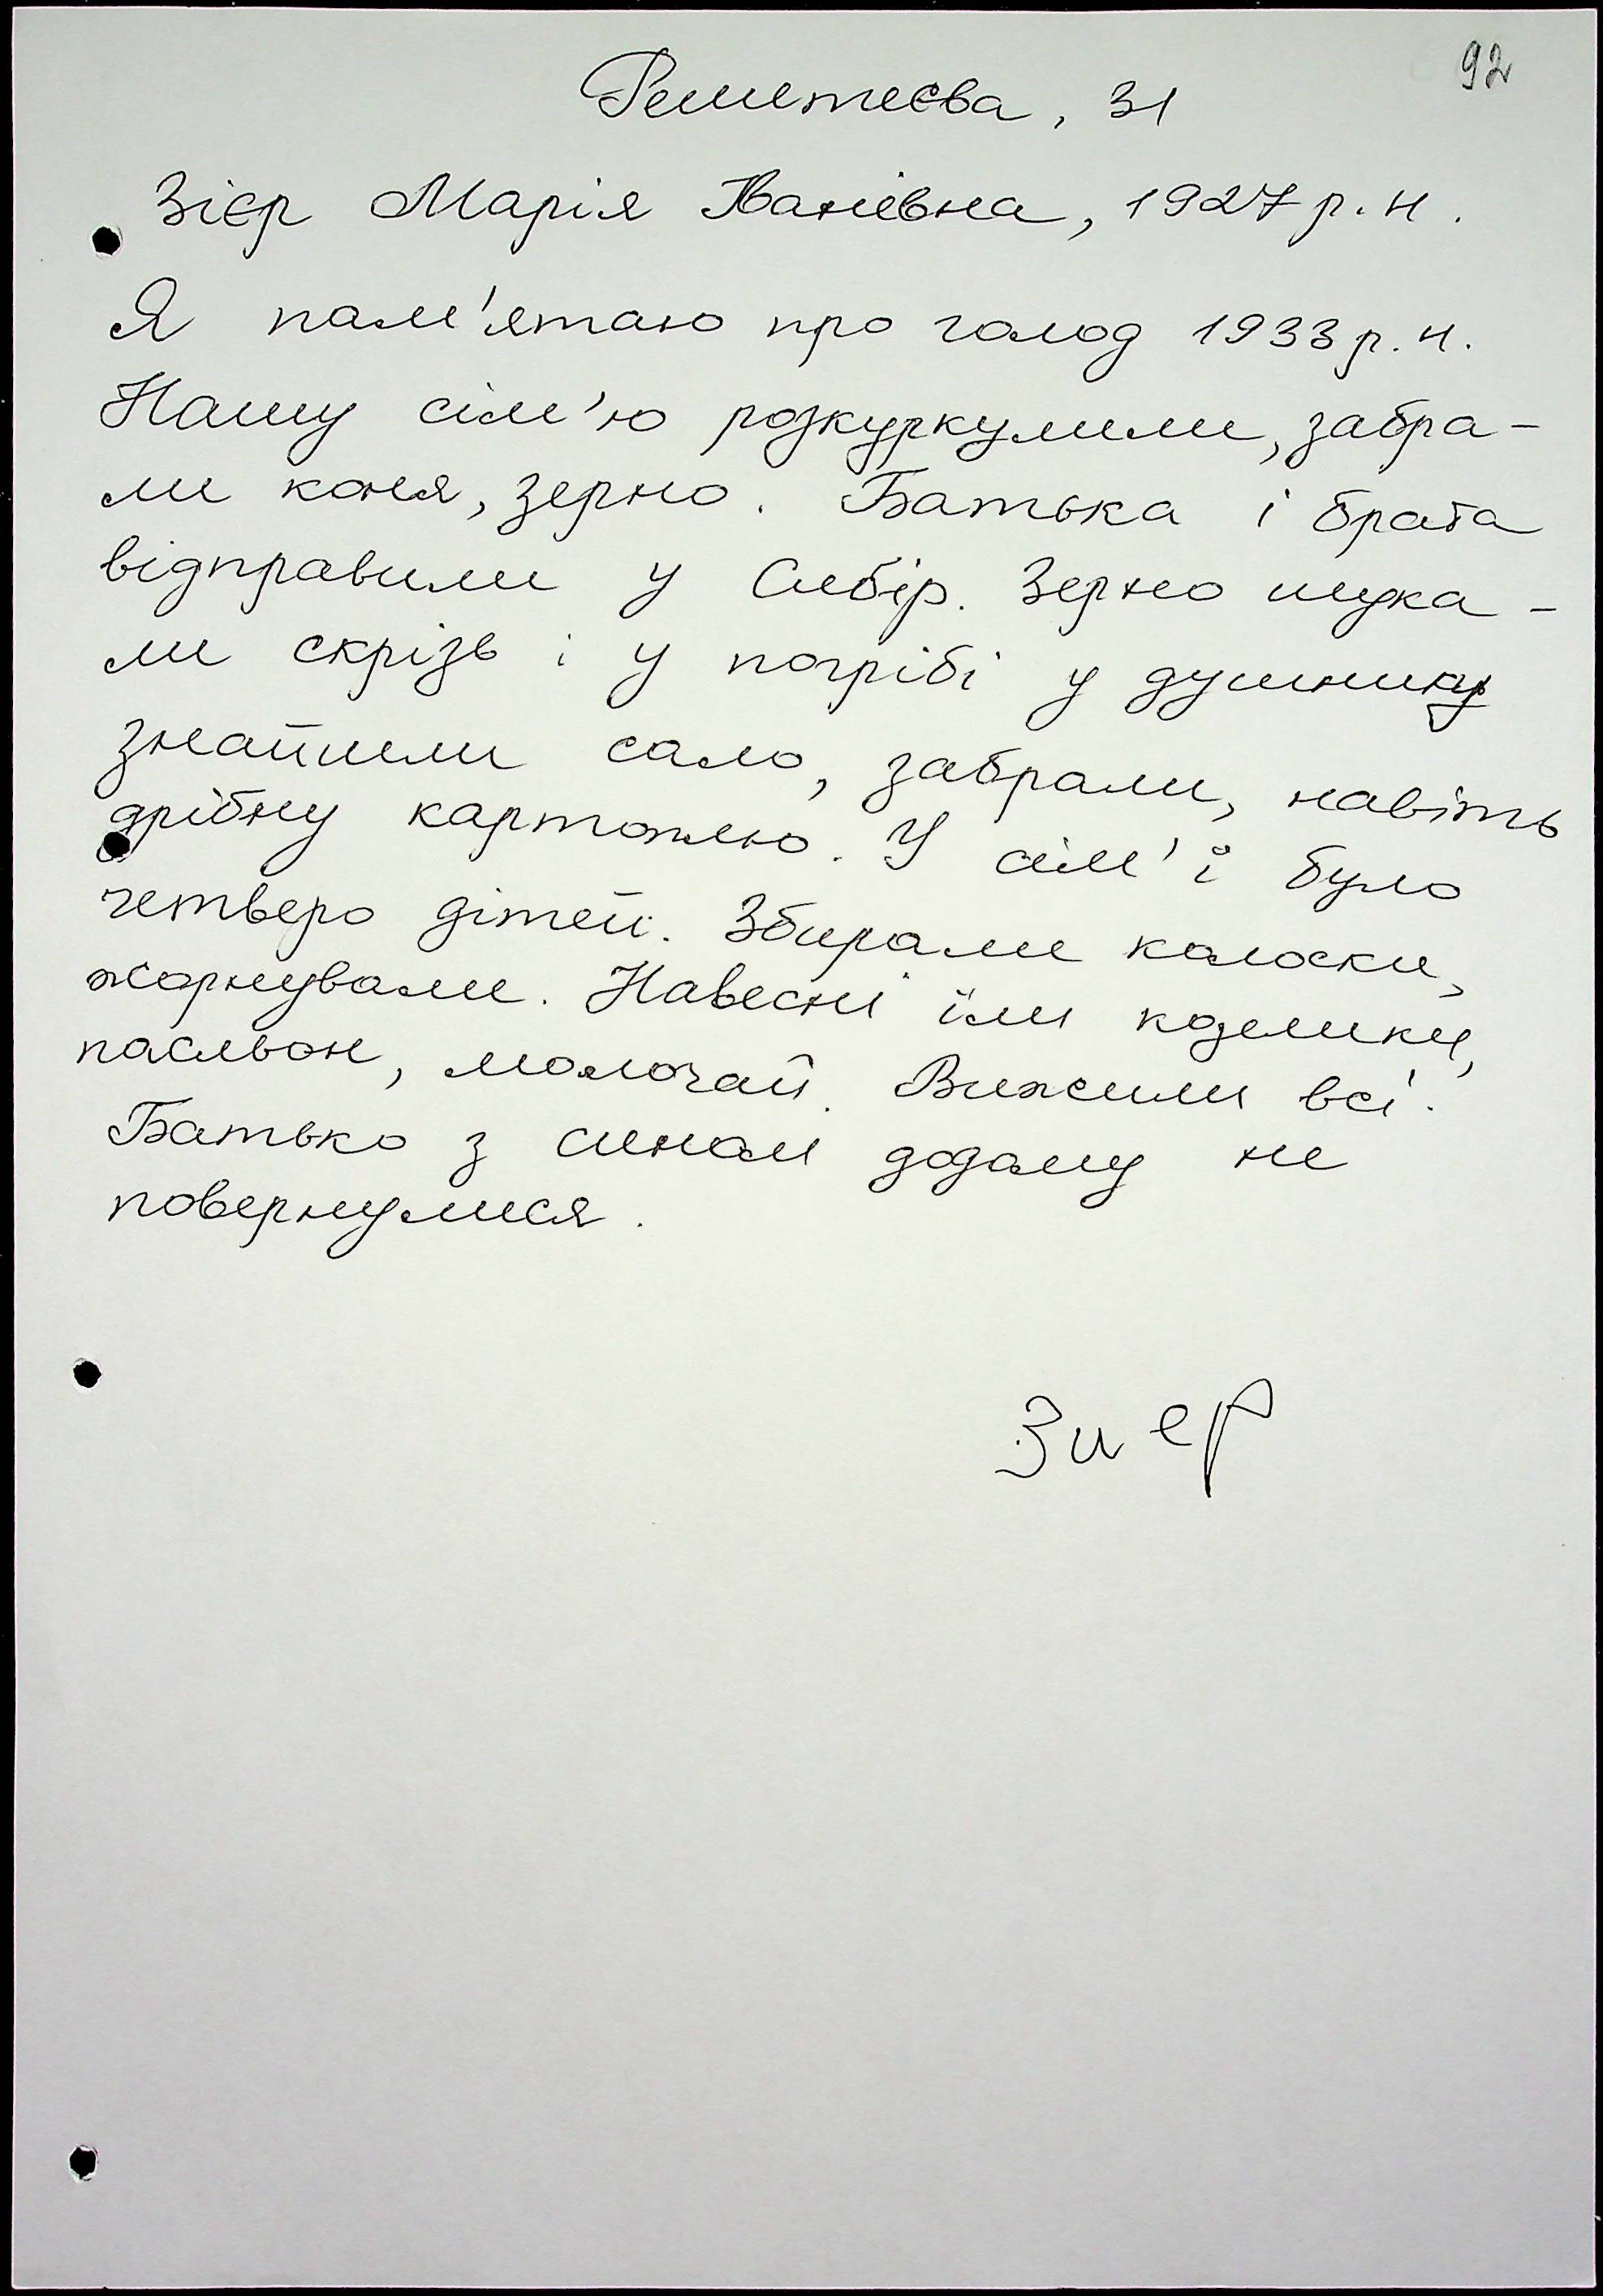 92
Решетєєва, 31
Зієр Марія Іванівна, 1927 р. н.
Я пам'ятаю про голод 1933 р. н.
Нашу сім'ю розкуркулили, забра-
ли коня, зерно. Батька і брата
відправили у Сибір. Зерно шука-
ли скрізь і у погрібі у душнику
знайшли сало, забрали, навіть
дрібну картоплю. У сім'ї було
четверо дітей. Збирали колоски,
жорнували. Навесні їли козелики,
пасльон, молочай. Вижили всі.
Батько з сином додому не
повернулися.
Зиер